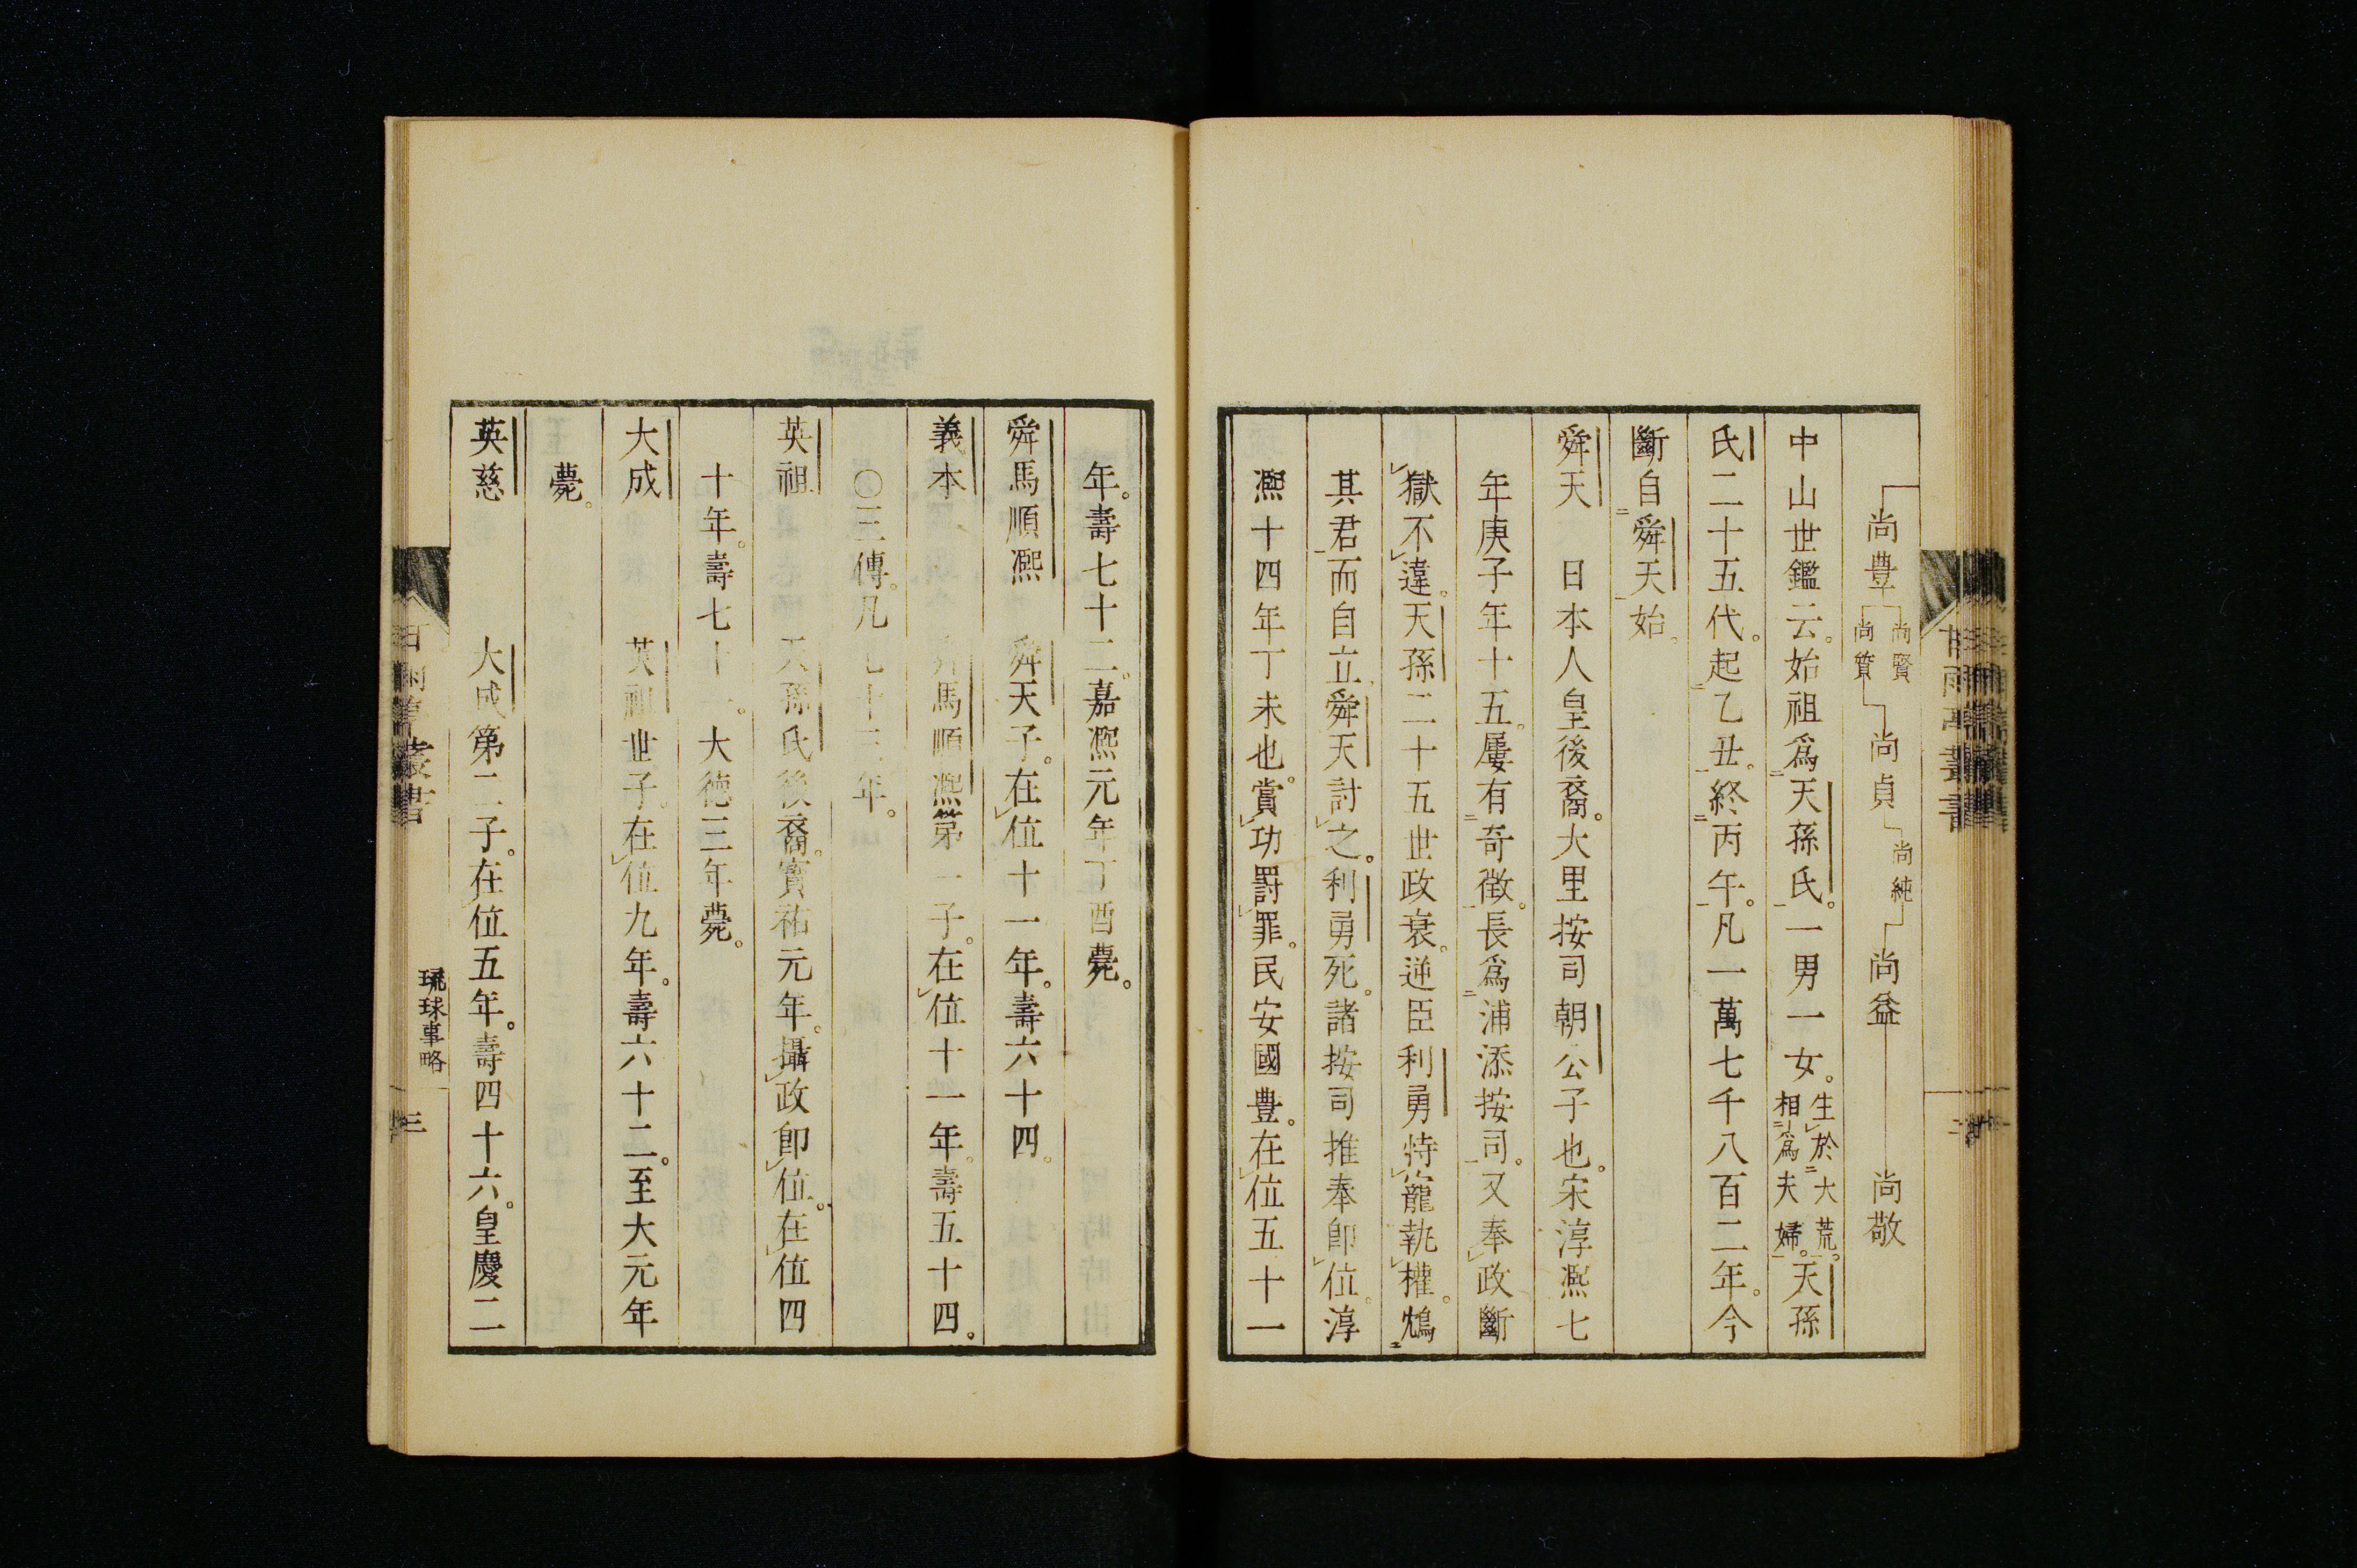 尚豊 尚賢 尚質 尚貞 尚純 尚益 尚敬
中山世鑑云。始祖爲天孫氏。一男一女。生於大荒。相爲夫婦。天孫
氏二十五代。起乙丑。終丙午。凡一萬七千八百二年。今
斷自舜天始。
舜天 日本人皇後裔。大里按司朝公子也。宋淳凞七
年庚子年十五。屢有奇徵。長爲浦添按司。又奉政斷
獄不違。天孫二十五世政衰。逆臣利勇恃寵執權。鴆
其君而自立。舜天討之。利勇死。諸按司推奉卽位。淳
凞十四年丁未也。賞功罸罪。民安國豊。在位五十一
年。壽七十二。嘉凞元年丁酉薨。
舜馬順凞 舜天子。在位十一年。壽六十四。
義本 舜馬順凞第一子。在位十一年。壽五十四。
〇三傳。凡七十三年。
英祖 天孫氏後裔。寳祐元年。攝政卽位。在位四
十年。壽七十一。大德三年薨。
大成 英祖世子。在位九年。壽六十二。至大元年
薨。
英慈 大成第二子。在位五年。壽四十六。皇慶二
甘雨亭叢書
琉球事略
三